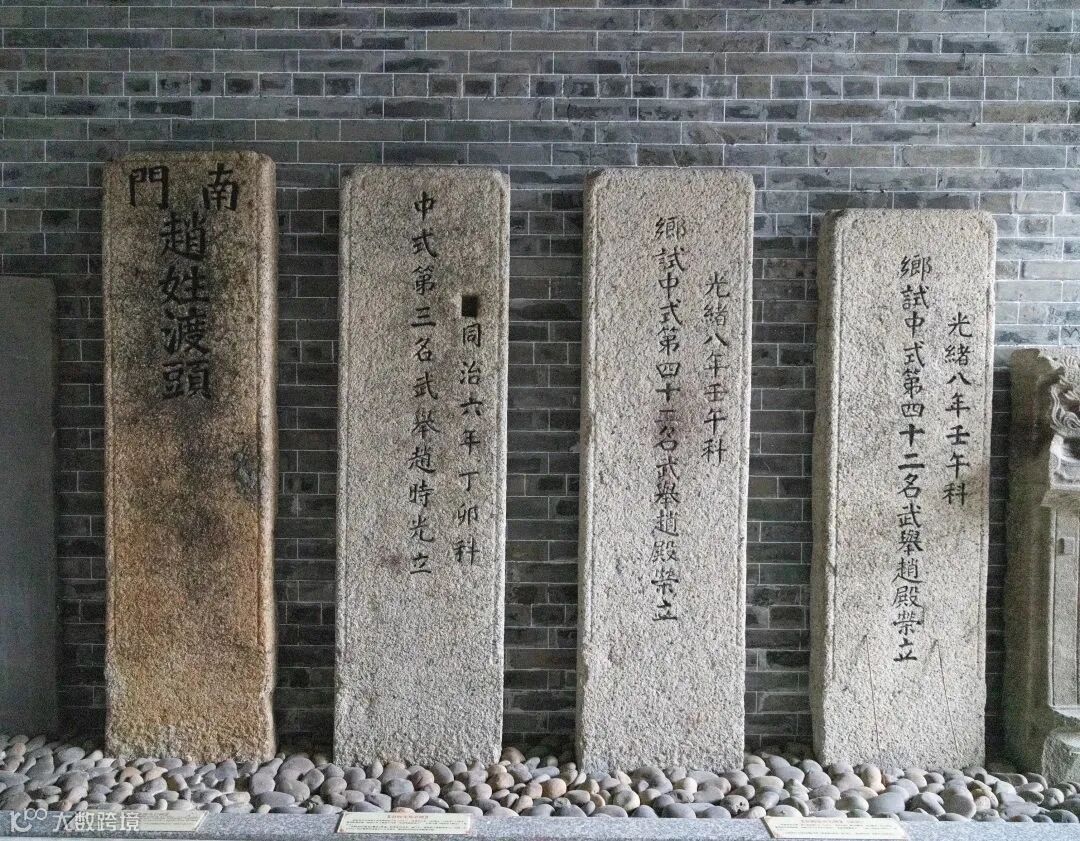 南門
趙姓渡頭
同治六年丁卯科
中式第三名武舉趙時光立
光緒八年壬午科
鄉試中式第四十二名武舉趙殿榮立
光緒八年壬午科
鄉試中式第四十二名武舉趙殿榮立
大数跨境